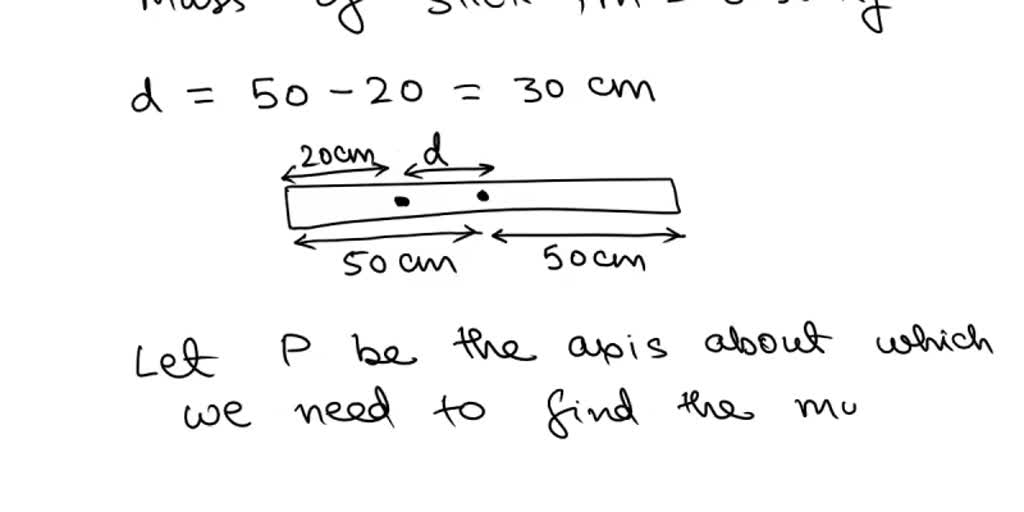 d = 50 - 20 = 30 cm
20cm d
50 cm 50cm
Let P be the axis about which
we need to find the mu